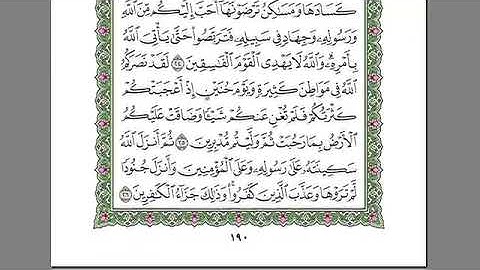 كَسَادَهَا وَمَسَٰكِنُ تَرْضَوْنَهَآ أَحَبَّ إِلَيْكُم مِّنَ ٱللَّهِ
وَرَسُولِهِۦ وَجِهَادٍ فِى سَبِيلِهِۦ فَتَرَبَّصُوا۟ حَتَّىٰ يَأْتِىَ ٱللَّهُ
بِأَمْرِهِۦ ۗ وَٱللَّهُ لَا يَهْدِى ٱلْقَوْمَ ٱلْفَٰسِقِينَ ٢٤ لَقَدْ نَصَرَكُمُ
ٱللَّهُ فِى مَوَاطِنَ كَثِيرَةٍ ۙ وَيَوْمَ حُنَيْنٍ ۙ إِذْ أَعْجَبَتْكُمْ
كَثْرَتُكُمْ فَلَمْ تُغْنِ عَنكُمْ شَيْـًٔا وَضَاقَتْ عَلَيْكُمُ
ٱلْأَرْضُ بِمَا رَحُبَتْ ثُمَّ وَلَّيْتُم مُّدْبِرِينَ ٢٥ ثُمَّ أَنزَلَ ٱللَّهُ
سَكِينَتَهُۥ عَلَىٰ رَسُولِهِۦ وَعَلَى ٱلْمُؤْمِنِينَ وَأَنزَلَ جُنُودًا
لَّمْ تَرَوْهَا وَعَذَّبَ ٱلَّذِينَ كَفَرُوا۟ ۚ وَذَٰلِكَ جَزَآءُ ٱلْكَٰفِرِينَ ٢٦
١٩٠